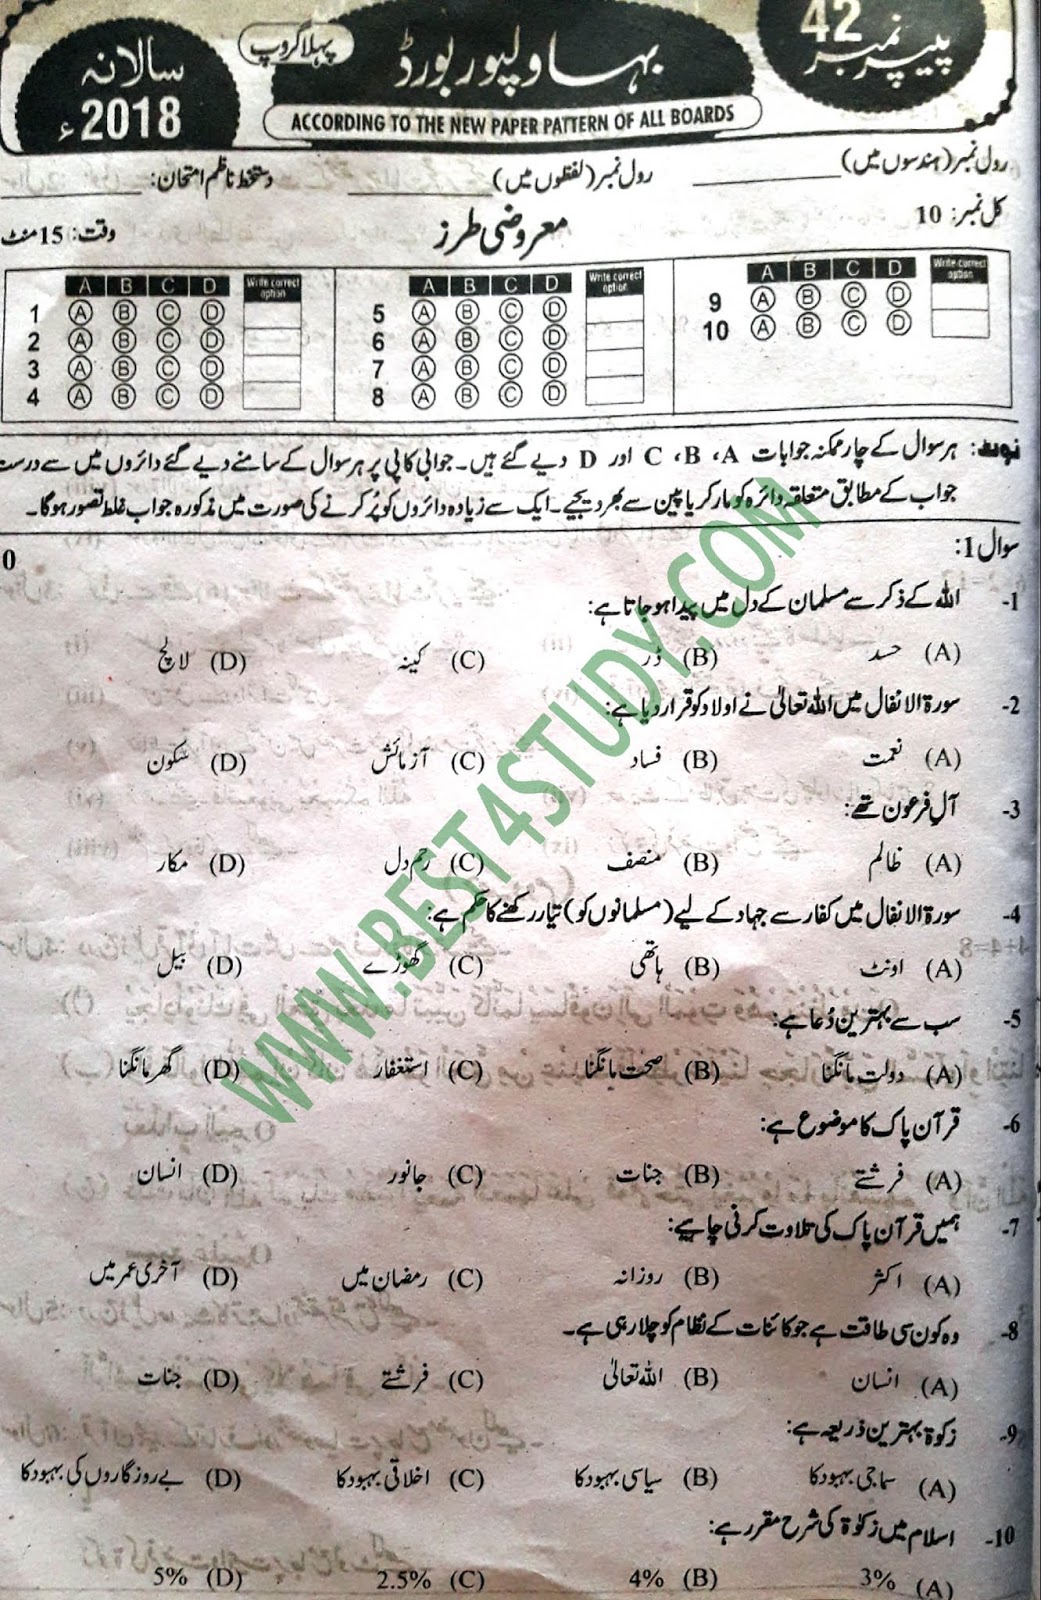 پیپر نمبر 42
بہاولپور بورڈ
پہلا گروپ
سالانہ 2018ء
ACCORDING TO THE NEW PAPER PATTERN OF ALL BOARDS
رول نمبر (ہندسوں میں) ________ رول نمبر (لفظوں میں) ________ دستخط ناظم امتحان: ________
کل نمبر: 10 معروضی طرز وقت: 15 منٹ
A B C D Write correct option A B C D Write correct option A B C D Write correct option
1 A B C D 5 A B C D 9 A B C D
2 A B C D 6 A B C D 10 A B C D
3 A B C D 7 A B C D
4 A B C D 8 A B C D
نوٹ: ہر سوال کے چار ممکنہ جوابات A، B، C اور D دیے گئے ہیں۔ جوابی کاپی پر ہر سوال کے سامنے دیے گئے دائروں میں سے درست
جواب کے مطابق متعلقہ دائرہ کو مارکر یا پین سے بھر دیجیے۔ ایک سے زیادہ دائروں کو پُر کرنے کی صورت میں مذکورہ جواب غلط تصور ہوگا۔
سوال 1: 0
1- اللہ کے ذکر سے مسلمان کے دل میں پیدا ہو جاتا ہے:
(A) حسد (B) ڈر (C) کینہ (D) لالچ
2- سورۃ الانفال میں اللہ تعالیٰ نے اولاد کو قرار دیا ہے:
(A) نعمت (B) فساد (C) آزمائش (D) سکون
3- آلِ فرعون تھے:
(A) ظالم (B) منصف (C) رحم دل (D) مکار
4- سورۃ الانفال میں کفار سے جہاد کے لیے (مسلمانوں کو) تیار رکھنے کا حکم ہے:
(A) اونٹ (B) ہاتھی (C) گھوڑے (D) بیل
5- سب سے بہترین دُعا ہے:
(A) دولت مانگنا (B) صحت مانگنا (C) استغفار (D) گھر مانگنا
6- قرآن پاک کا موضوع ہے:
(A) فرشتے (B) جنات (C) جانور (D) انسان
7- ہمیں قرآن پاک کی تلاوت کرنی چاہیے:
(A) اکثر (B) روزانہ (C) رمضان میں (D) آخری عمر میں
8- وہ کون سی طاقت ہے جو کائنات کے نظام کو چلا رہی ہے۔
(A) انسان (B) اللہ تعالیٰ (C) فرشتے (D) جنات
9- زکوٰۃ بہترین ذریعہ ہے:
(A) سماجی بہبود کا (B) سیاسی بہبود کا (C) اخلاقی بہبود کا (D) بے روزگاروں کی بہبود کا
10- اسلام میں زکوٰۃ کی شرح مقرر ہے:
(A) 3% (B) 4% (C) 2.5% (D) 5%
WWW.BEST4STUDY.COM